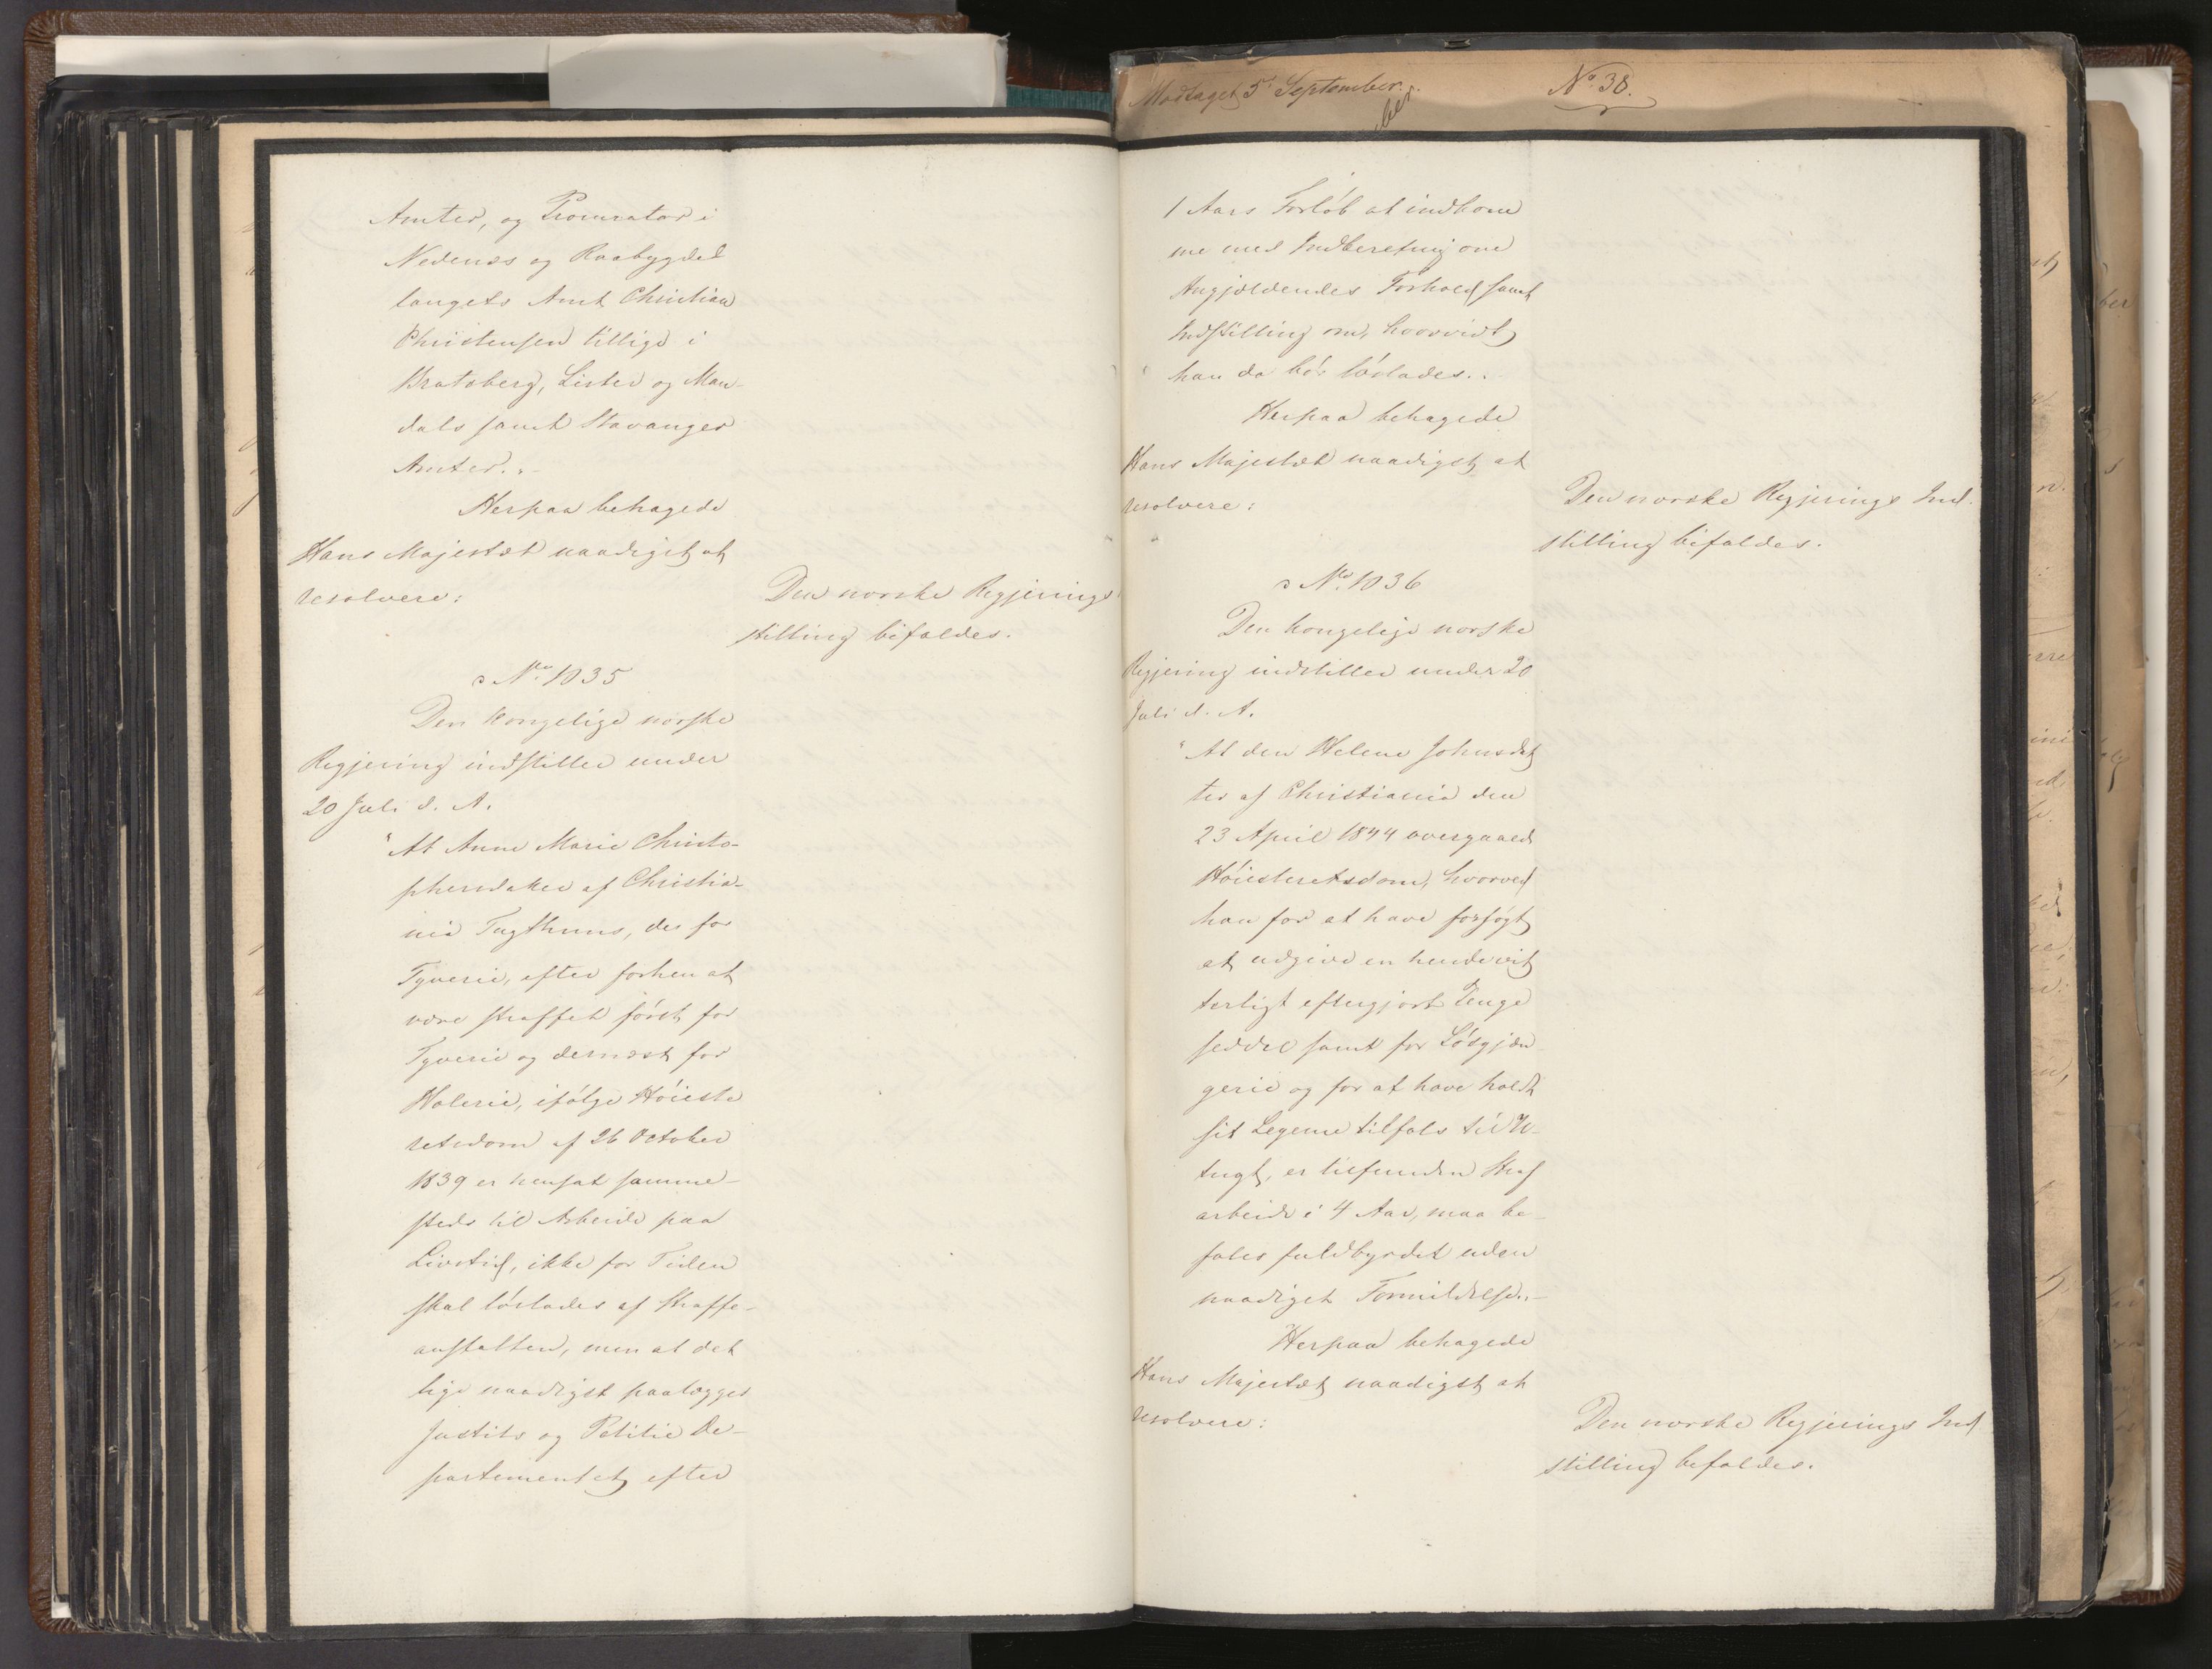 Amter, og Procurator i
Nedenæs og Raabygde-
laugets Amt Christian
Christensen tillige i
Bratsberg, Lister og Man-
dals samt Stavanger
Amter.“
Herpaa behagede
Hans Majestæt naadigst at
resolvere:
Den norske Regjerings
stilling bifaldes.
No. 1035
Den kongelige norske
Regjering indstiller under
20 Juli d. A.
"At Anne Marie Christo-
phersdatter af Christia-
nia Tugthuus, der for
Tyverie, efter forhen at
være straffet først for
Tyverie og dernæst for
Hæleri, ifølge Høieste
retsdom af 26 October
1839 er hensat samme-
steds til Arbeide paa
Livstid, ikke for Tiden
skal løslades af Straffe-
anstalten, men at det
lige naadigst paalægges
Justits og Politie De-
partementet, efter
Modtaget 5te September.
No. 38.
ber
1 Aars Forløb at indkom
me med Indberetning om
Angjældendes Forhold samt
Indstilling om, hvorvidt
han da bør løslades.“
Herpaa behagede
Hans Majestæt naadigst at
resolvere:
Den norske Regjerings Ind-
stilling bifaldes.
No. 1036
Den kongelige norske
Regjering indstiller under 20
Juli d. A.
"At den Helene Johnsdat
ter af Christiania den
23 April 1844 overgaaede
Høiesteretsdom, hvorved
hun for at have forsøgt
at udgive en hende vit
terligt eftergjort Penge
seddel samt for Løsgjæn
gerie og for at have holdt
sit Legeme tilfals til U-
tugt, er tilfunden Straf
arbeide i 4 Aar, maa be-
fales fuldbyrdet uden
naadigst Formildelse.“
Herpaa behagede
Hans Majestæt naadigst at
resolvere:
Den norske Regjerings Ind
stilling bifaldes.